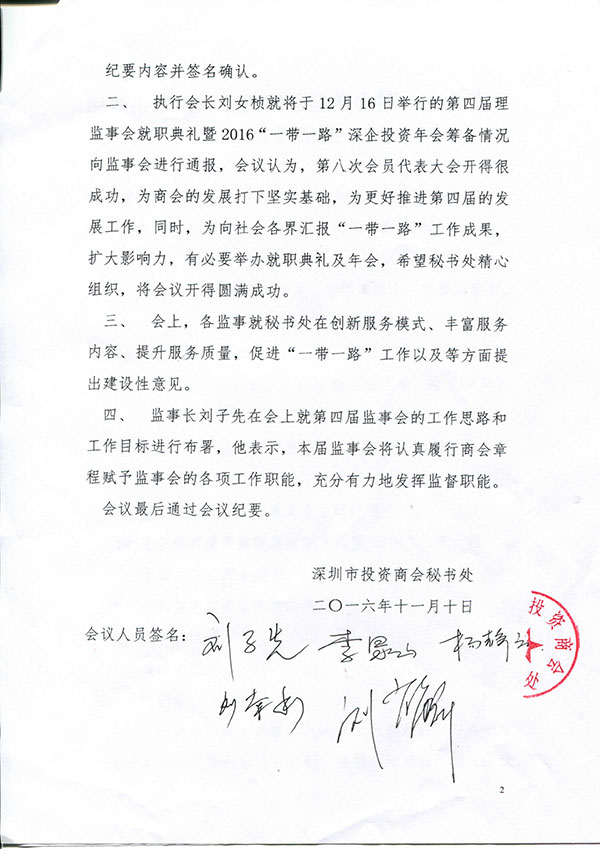 纪要内容并签名确认。
二、 执行会长刘女桢就将于12月16日举行的第四届理
监事会就职典礼暨2016“一带一路”深企投资年会筹备情况
向监事会进行通报，会议认为，第八次会员代表大会开得很
成功，为商会的发展打下坚实基础，为更好推进第四届的发
展工作，同时，为向社会各界汇报“一带一路”工作成果，
扩大影响力，有必要举办就职典礼及年会，希望秘书处精心
组织，将会议开得圆满成功。
三、 会上，各监事就秘书处在创新服务模式、丰富服务
内容、提升服务质量，促进“一带一路”工作以及等方面提
出建设性意见。
四、 监事长刘子先在会上就第四届监事会的工作思路和
工作目标进行布署，他表示，本届监事会将认真履行商会章
程赋予监事会的各项工作职能，充分有力地发挥监督职能。
会议最后通过会议纪要。
深圳市投资商会秘书处
二〇一六年十一月十日
会议人员签名：刘子先
投资商会
处
2